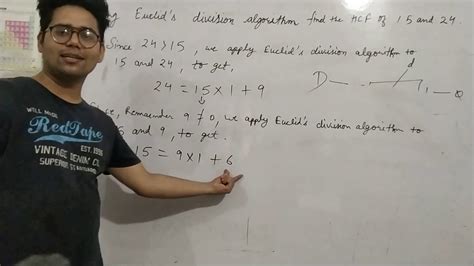 Euclid's division algorithm find the HCF of 15 and 24.
Since 24 > 15, we apply Euclid's division algorithm to
15 and 24, to get,
24 = 15 × 1 + 9
Remainder 9 ≠ 0, we apply Euclid's division algorithm to
and 9, to get.
15 = 9 × 1 + 6
D
d
Q
WILL MADE
RedTape
VINTAGE DENIM CO